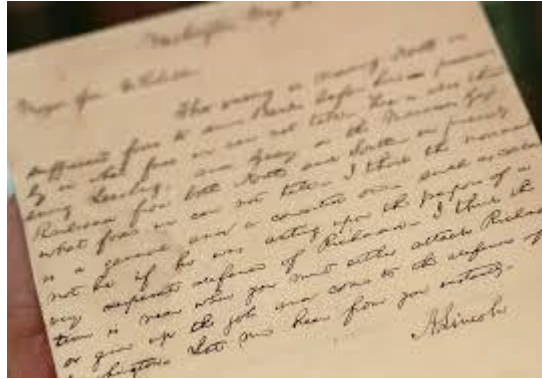 Washington May 25
Major Gen. McClellan
The enemy is moving North in
sufficient force to drive Banks before him precise-
ly in what force we can not tell. He is also threat-
ening Leesburg and Geary on the Manassas Gap
Railroad from both North and South in precisely
what force we can not tell. I think the movement
is a general and a concerted one, such as could
not be if he was acting upon the purpose of a
very desperate defence of Richmond. I think the
time is near when you must either attack Richmond
or give up the job and come to the defence of
Washington. Let me hear from you instantly.
A. Lincoln